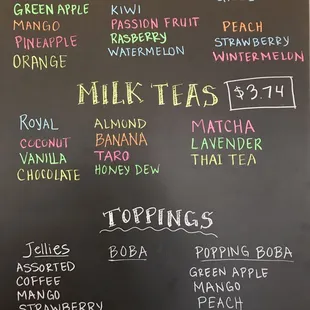 GREEN APPLE
MANGO
PINEAPPLE
ORANGE
KIWI
PASSION FRUIT
RASBERRY
WATERMELON
PEACH
STRAWBERRY
WINTERMELON
MILK TEAS $3.74
ROYAL
COCONUT
VANILLA
CHOCOLATE
ALMOND
BANANA
TARO
HONEY DEW
MATCHA
LAVENDER
THAI TEA
TOPPINGS
Jellies
ASSORTED
COFFEE
MANGO
STRAWBERRY
BOBA
POPPING BOBA
GREEN APPLE
MANGO
PEACH